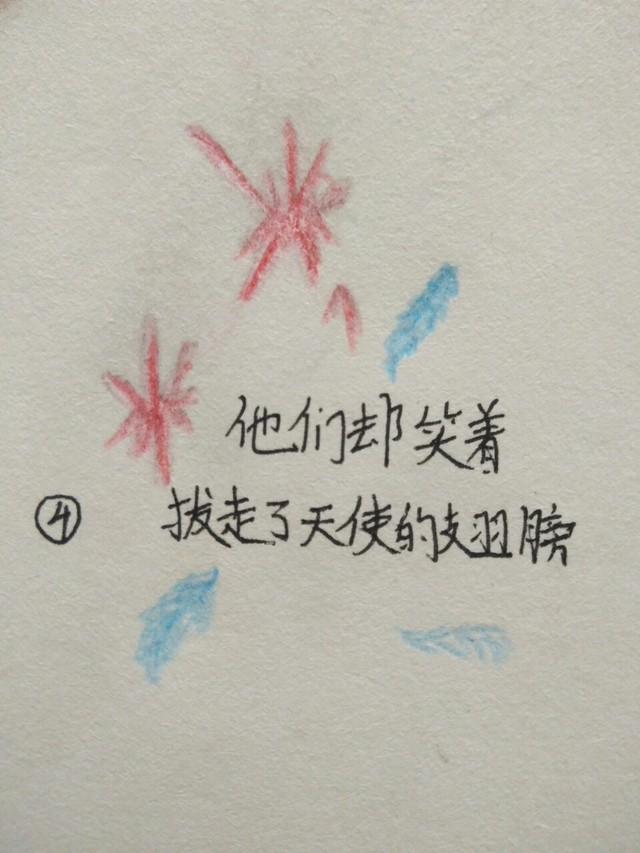 他们却笑着
④ 拔走了天使的翅膀